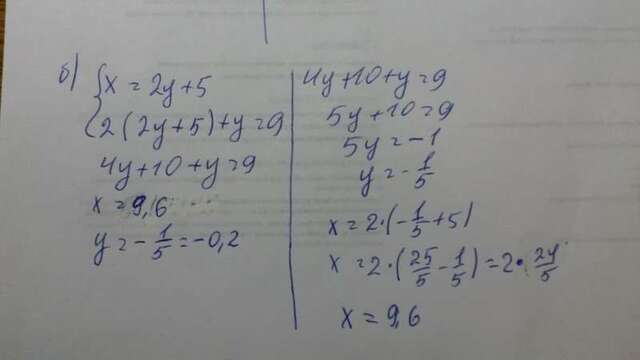 б) { x = 2y + 5
2(2y+5)+y=9
4y+10+y=9
x = 9,6
y = -1/5 = -0,2
4y+10+y=9
5y+10=9
5y=-1
y=-1/5
x = 2·(-1/5+5)
x = 2·(25/5 - 1/5) = 2·24/5
x = 9,6